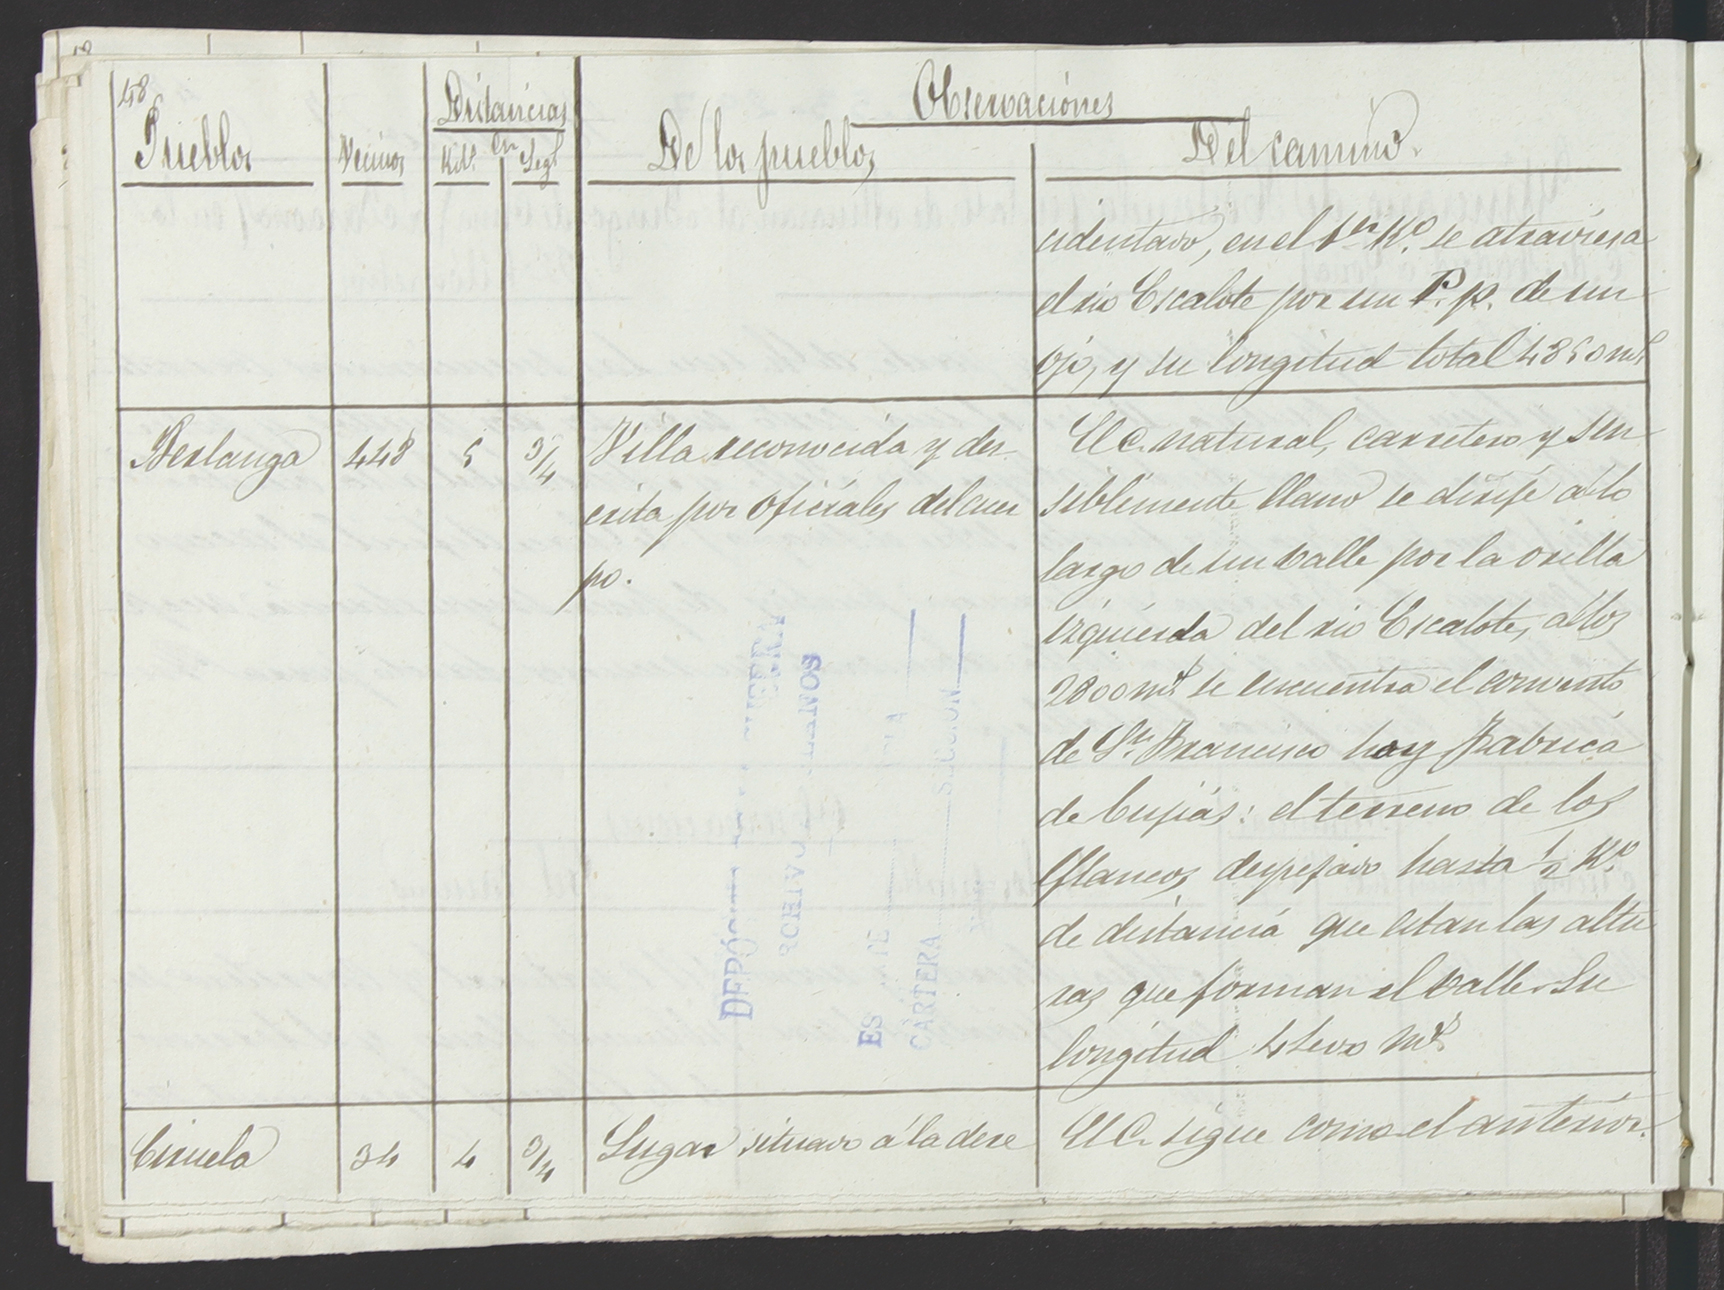 48
Pueblos
Vecinos
Distancias
en
Kils. Legs
Observaciones
De los pueblos
Del camino.
cidentado, en el 1er Ko. se atraviesa
el rio Escalote por un P. p. de un
ojo, y su longitud total 4850 ms
Berlanga 448 5 3/4
Villa reconocida y des-
crita por Oficiales del cuer
po.
El C. natural, carretero y sen
siblemente llano se dirije á lo
largo de un valle por la orilla
izquierda del rio Escalote, á los
2800 mts se encuentra el convento
de Sn Francisco hoy Fabrica
de bujias: el terreno de los
flancos despejado hasta 1/2 Ko.
de distancia que estan las altu
ras que forman el valle. Su
longitud mts
DEPÓSITO GUERRA
ARCHIVO PLANOS
ES TE LA
CARTERA SECCION
Ciruela 34 4 3/4
Lugar situado á la dere
El C. sigue como el anterior.